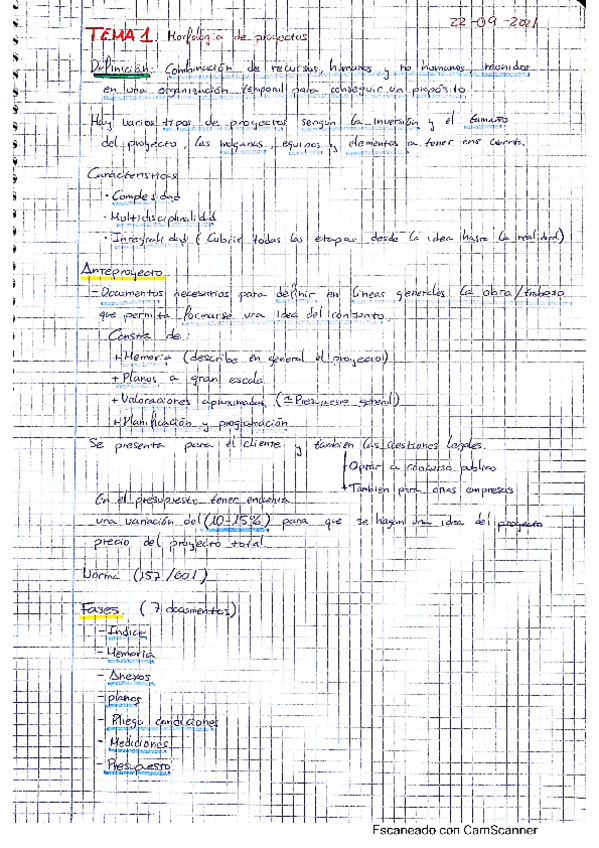 22-09-2021
TEMA 1. Morfología de proyectos
Definición: Combinación de recursos, humanos y no humanos, reunidos
en una organización temporal para conseguir un propósito
Hay varios tipos de proyectos sengún la inversión y el tamaño
del proyecto, las máquinas, equipos y elementos a tener en cuenta.
Caracteristicas
· Complejidad
· Multidisciplinalidad
· Integralidad (Cubrir todas las etapas desde la idea hasta la realidad)
Anteproyecto
- Documentos necesarios para definir en lineas generales la obra/trabajo
que permita formarse una idea del conjunto.
Consta de:
+ Memoria (describe en general el proyecto)
+ Planos a gran escala
+ Valoraciones aproximadas (± Presupuesto general)
+ Planificación y programación
Se presenta para el cliente y tambien las cuestiones legales.
Optar a concurso publico
Tambien para otras empresas
En el presupuesto tener
una variación del (10-15%) para que se hagan una idea del proyecto
precio del proyecto total
Norma (157/601)
Fases. (7 documentos)
- Indice
- Memoria
- Anexos
- planos
- Pliego condiciones
- Mediciones
- Presupuesto
Escaneado con CamScanner